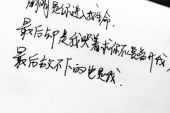 你进入我生命，
最后却是我哭着求你不要离开我，
最后放不下的也是我.